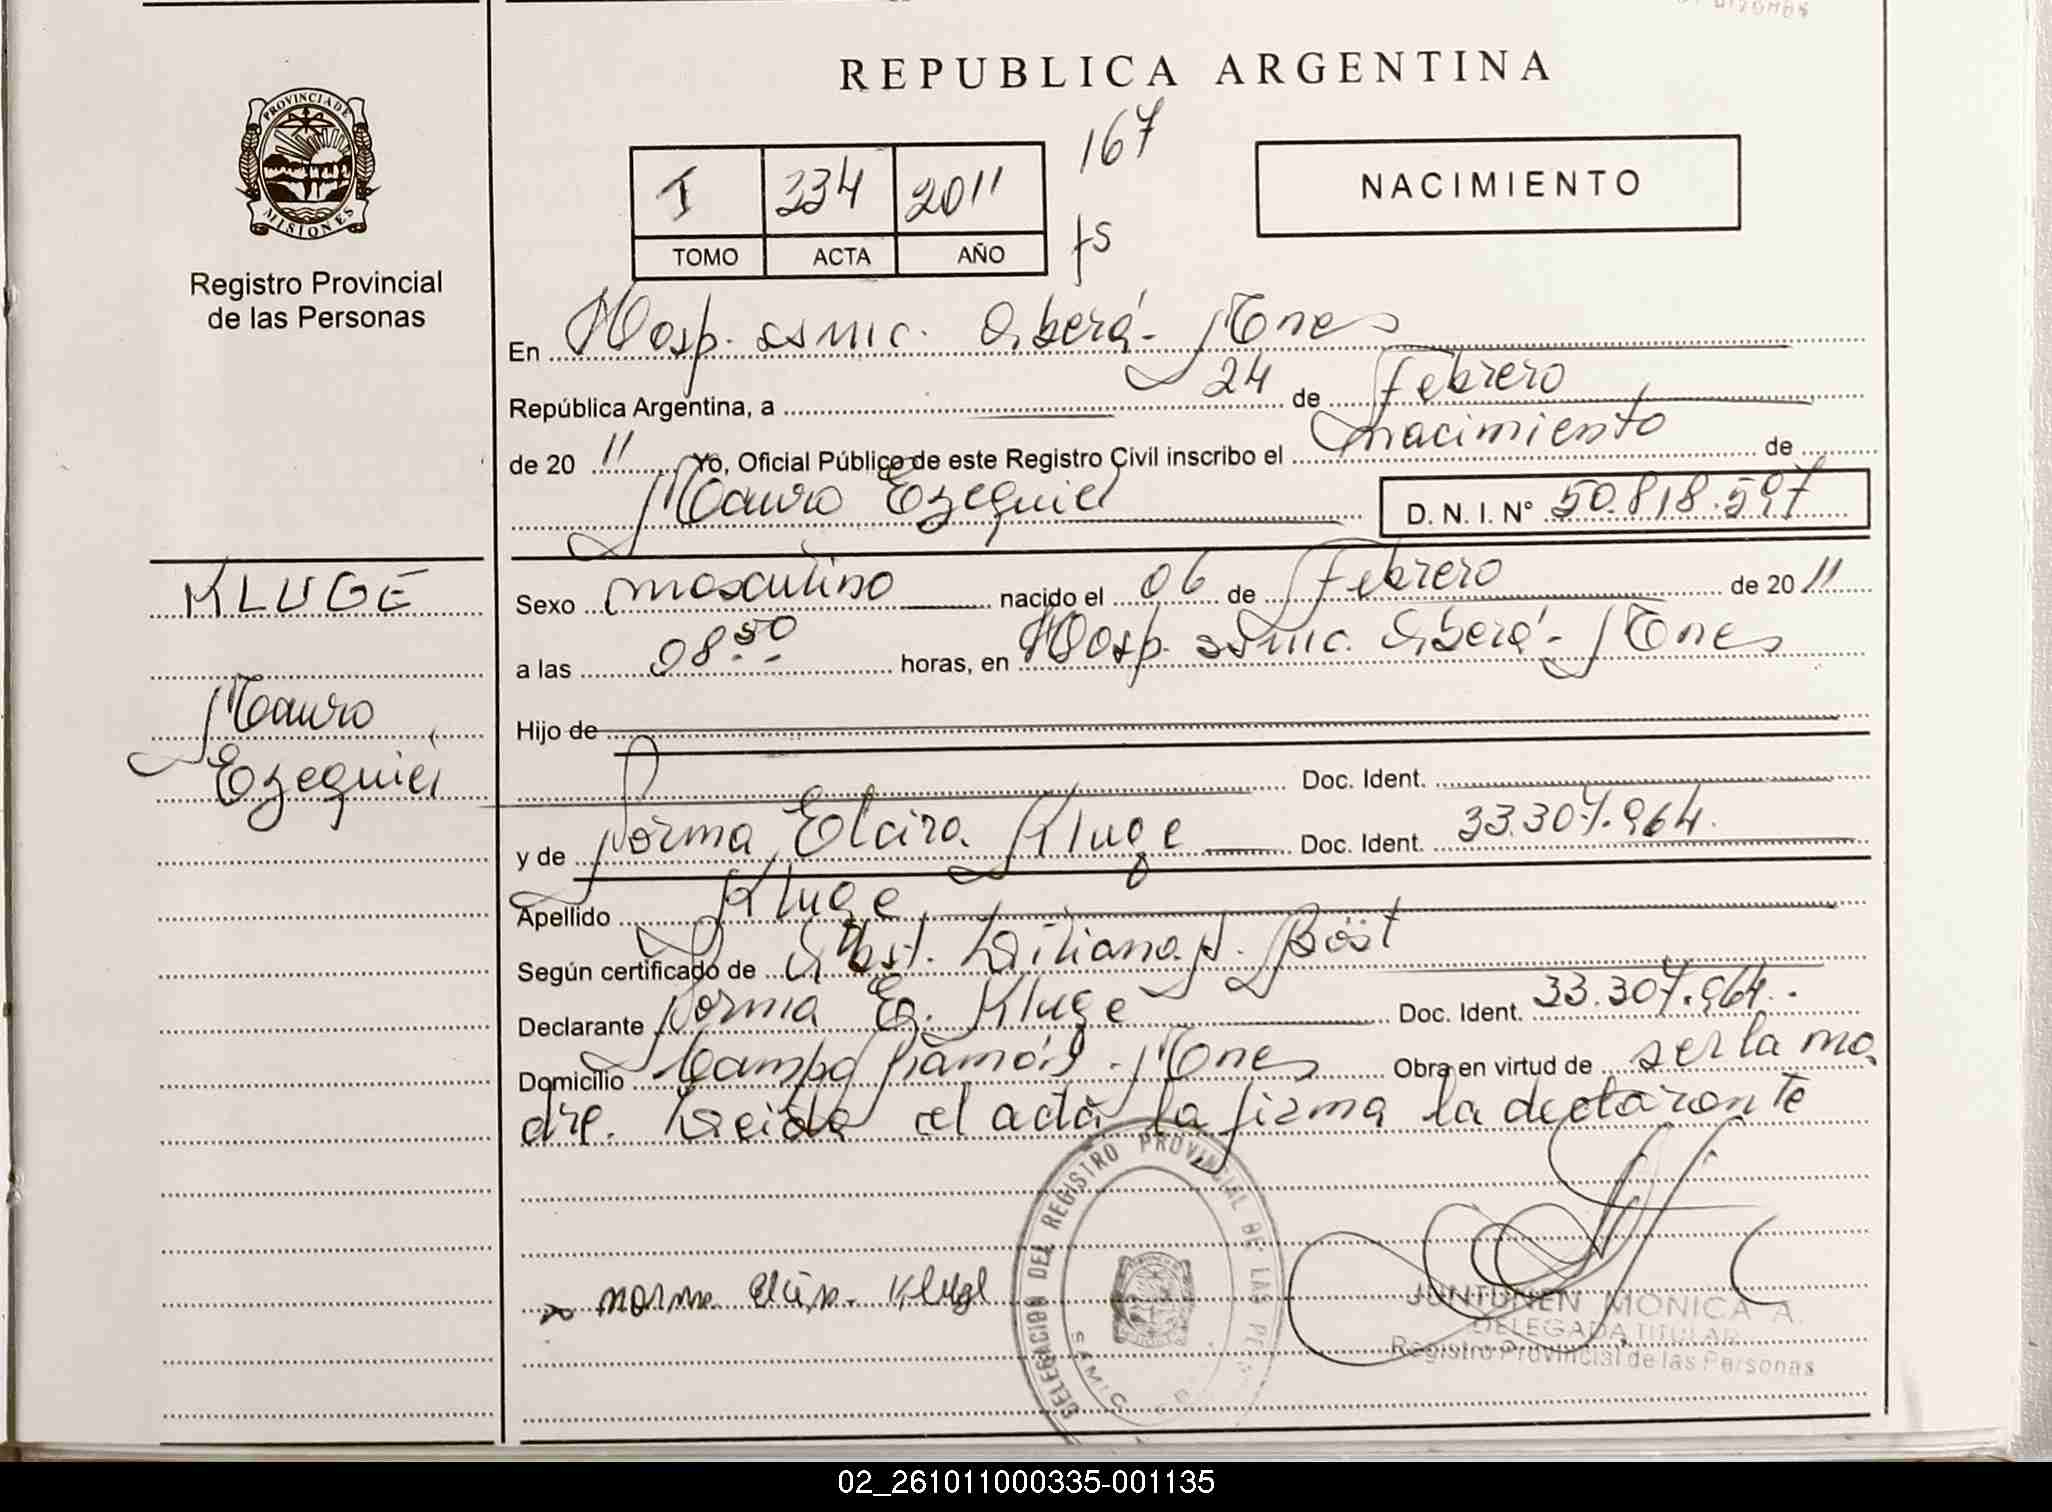 REPUBLICA ARGENTINA
PROVINCIA DE
MISIONES
Registro Provincial
de las Personas
I 334 2011
TOMO ACTA AÑO
167
fs
NACIMIENTO
En Hosp. SAMIC. Oberá - Mnes
República Argentina, a 24 de Febrero
de 20 11 Yo, Oficial Público de este Registro Civil inscribo el nacimiento de
Mauro Ezequiel D. N. I. Nº 50.818.597
KLUGE
Mauro
Ezequiel
Sexo masculino nacido el 06 de Febrero de 20 11
a las 08:50 horas, en Hosp. SAMIC. Oberá - Mnes
Hijo de
Doc. Ident.
y de Norma Elcira Kluge Doc. Ident. 33.307.964.
Apellido Kluge
Según certificado de Obst. Liliana Böst
Declarante Norma E. Kluge Doc. Ident. 33.307.964.
Domicilio Campo Ramón - Mnes Obra en virtud de ser la ma
dre. Leida el acta la firma la declarante
Norma Elcira Kluge
DELEGACION DEL REGISTRO PROVINCIAL DE LAS PE
SAMIC
JUNTUNEN MONICA A.
DELEGADA TITULAR
Registro Provincial de las Personas
02_261011000335-001135